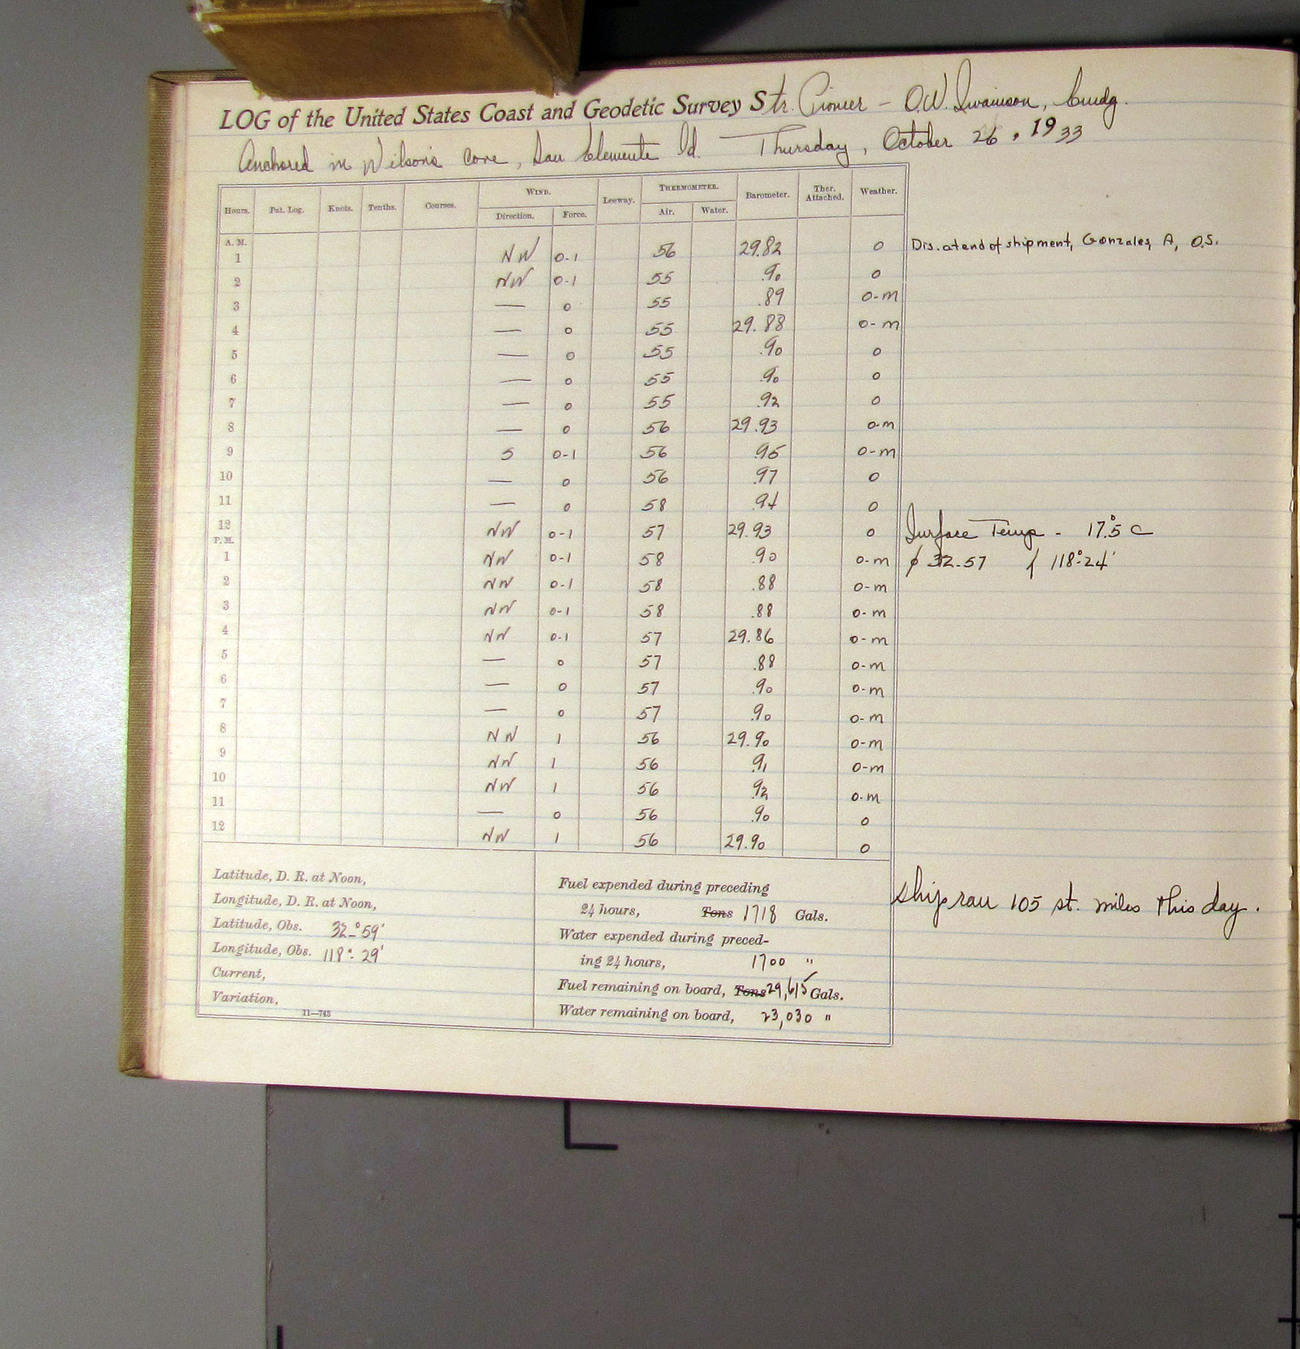 LOG of the United States Coast and Geodetic Survey Str. Pioneer - O.W. Swainson, Cmdg.
Anchored in Wilson's Cove, San Clemente Id. Thursday, October 26, 1933
Hours. Pat. Log. Knots. Tenths. Courses. WIND. Direction. Force. Leeway. THERMOMETER. Air. Water. Barometer. Ther. Attached. Weather.
A. M.
1 NW 0-1 56 29.82 o Dis. at end of shipment, Gonzales, A, O.S.
2 NW 0-1 55 .90 o
3 — 0 55 .89 o-m
4 — 0 55 29.88 o-m
5 — 0 55 .90 o
6 — 0 55 .90 o
7 — 0 55 .92 o
8 — 0 56 29.93 o-m
9 S 0-1 56 .95 o-m
10 — 0 56 .97 o
11 — 0 58 .94 o
12 NW 0-1 57 29.93 o Surface Temp - 17.5° C
P. M.
1 NW 0-1 58 .90 o-m ϕ 32-57 118°-24'
2 NW 0-1 58 .88 o-m
3 NW 0-1 58 .88 o-m
4 NW 0-1 57 29.86 o-m
5 — 0 57 .88 o-m
6 — 0 57 .90 o-m
7 — 0 57 .90 o-m
8 NW 1 56 29.90 o-m
9 NW 1 56 .91 o-m
10 NW 1 56 .92 o-m
11 — 0 56 .90 o
12 NW 1 56 29.90 o
Latitude, D. R. at Noon,
Longitude, D. R. at Noon,
Latitude, Obs. 32-°59'
Longitude, Obs. 118°- 29'
Current,
Variation,
11—743
Fuel expended during preceding
24 hours, Tons 1718 Gals.
Water expended during preced-
ing 24 hours, 1700 "
Fuel remaining on board, Tons 29,615 Gals.
Water remaining on board, 23,030 "
Ship ran 105 st. miles this day.